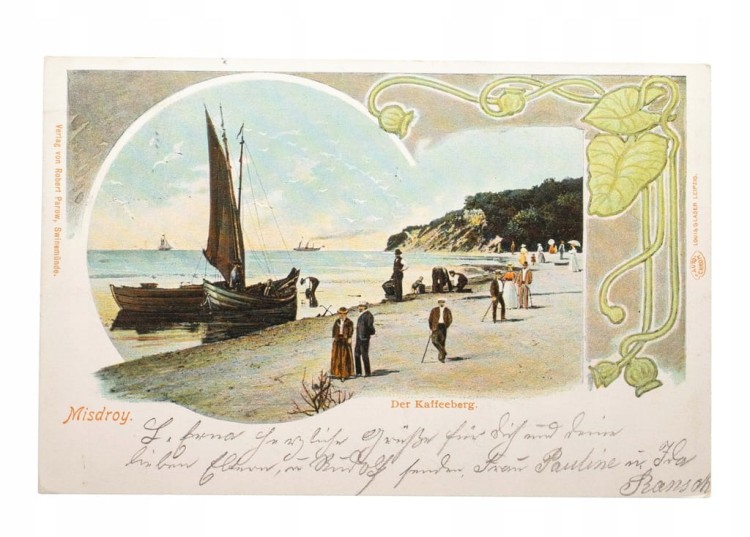 Verlag von Robert Parow, Swinemünde.
LOUIS GLASER LEIPZIG.
Der Kaffeeberg.
Misdroy.
L. Erna herzliche Grüße für Dich und deine
lieben Eltern, u. Rudolf senden. Frau Pauline u. Ida